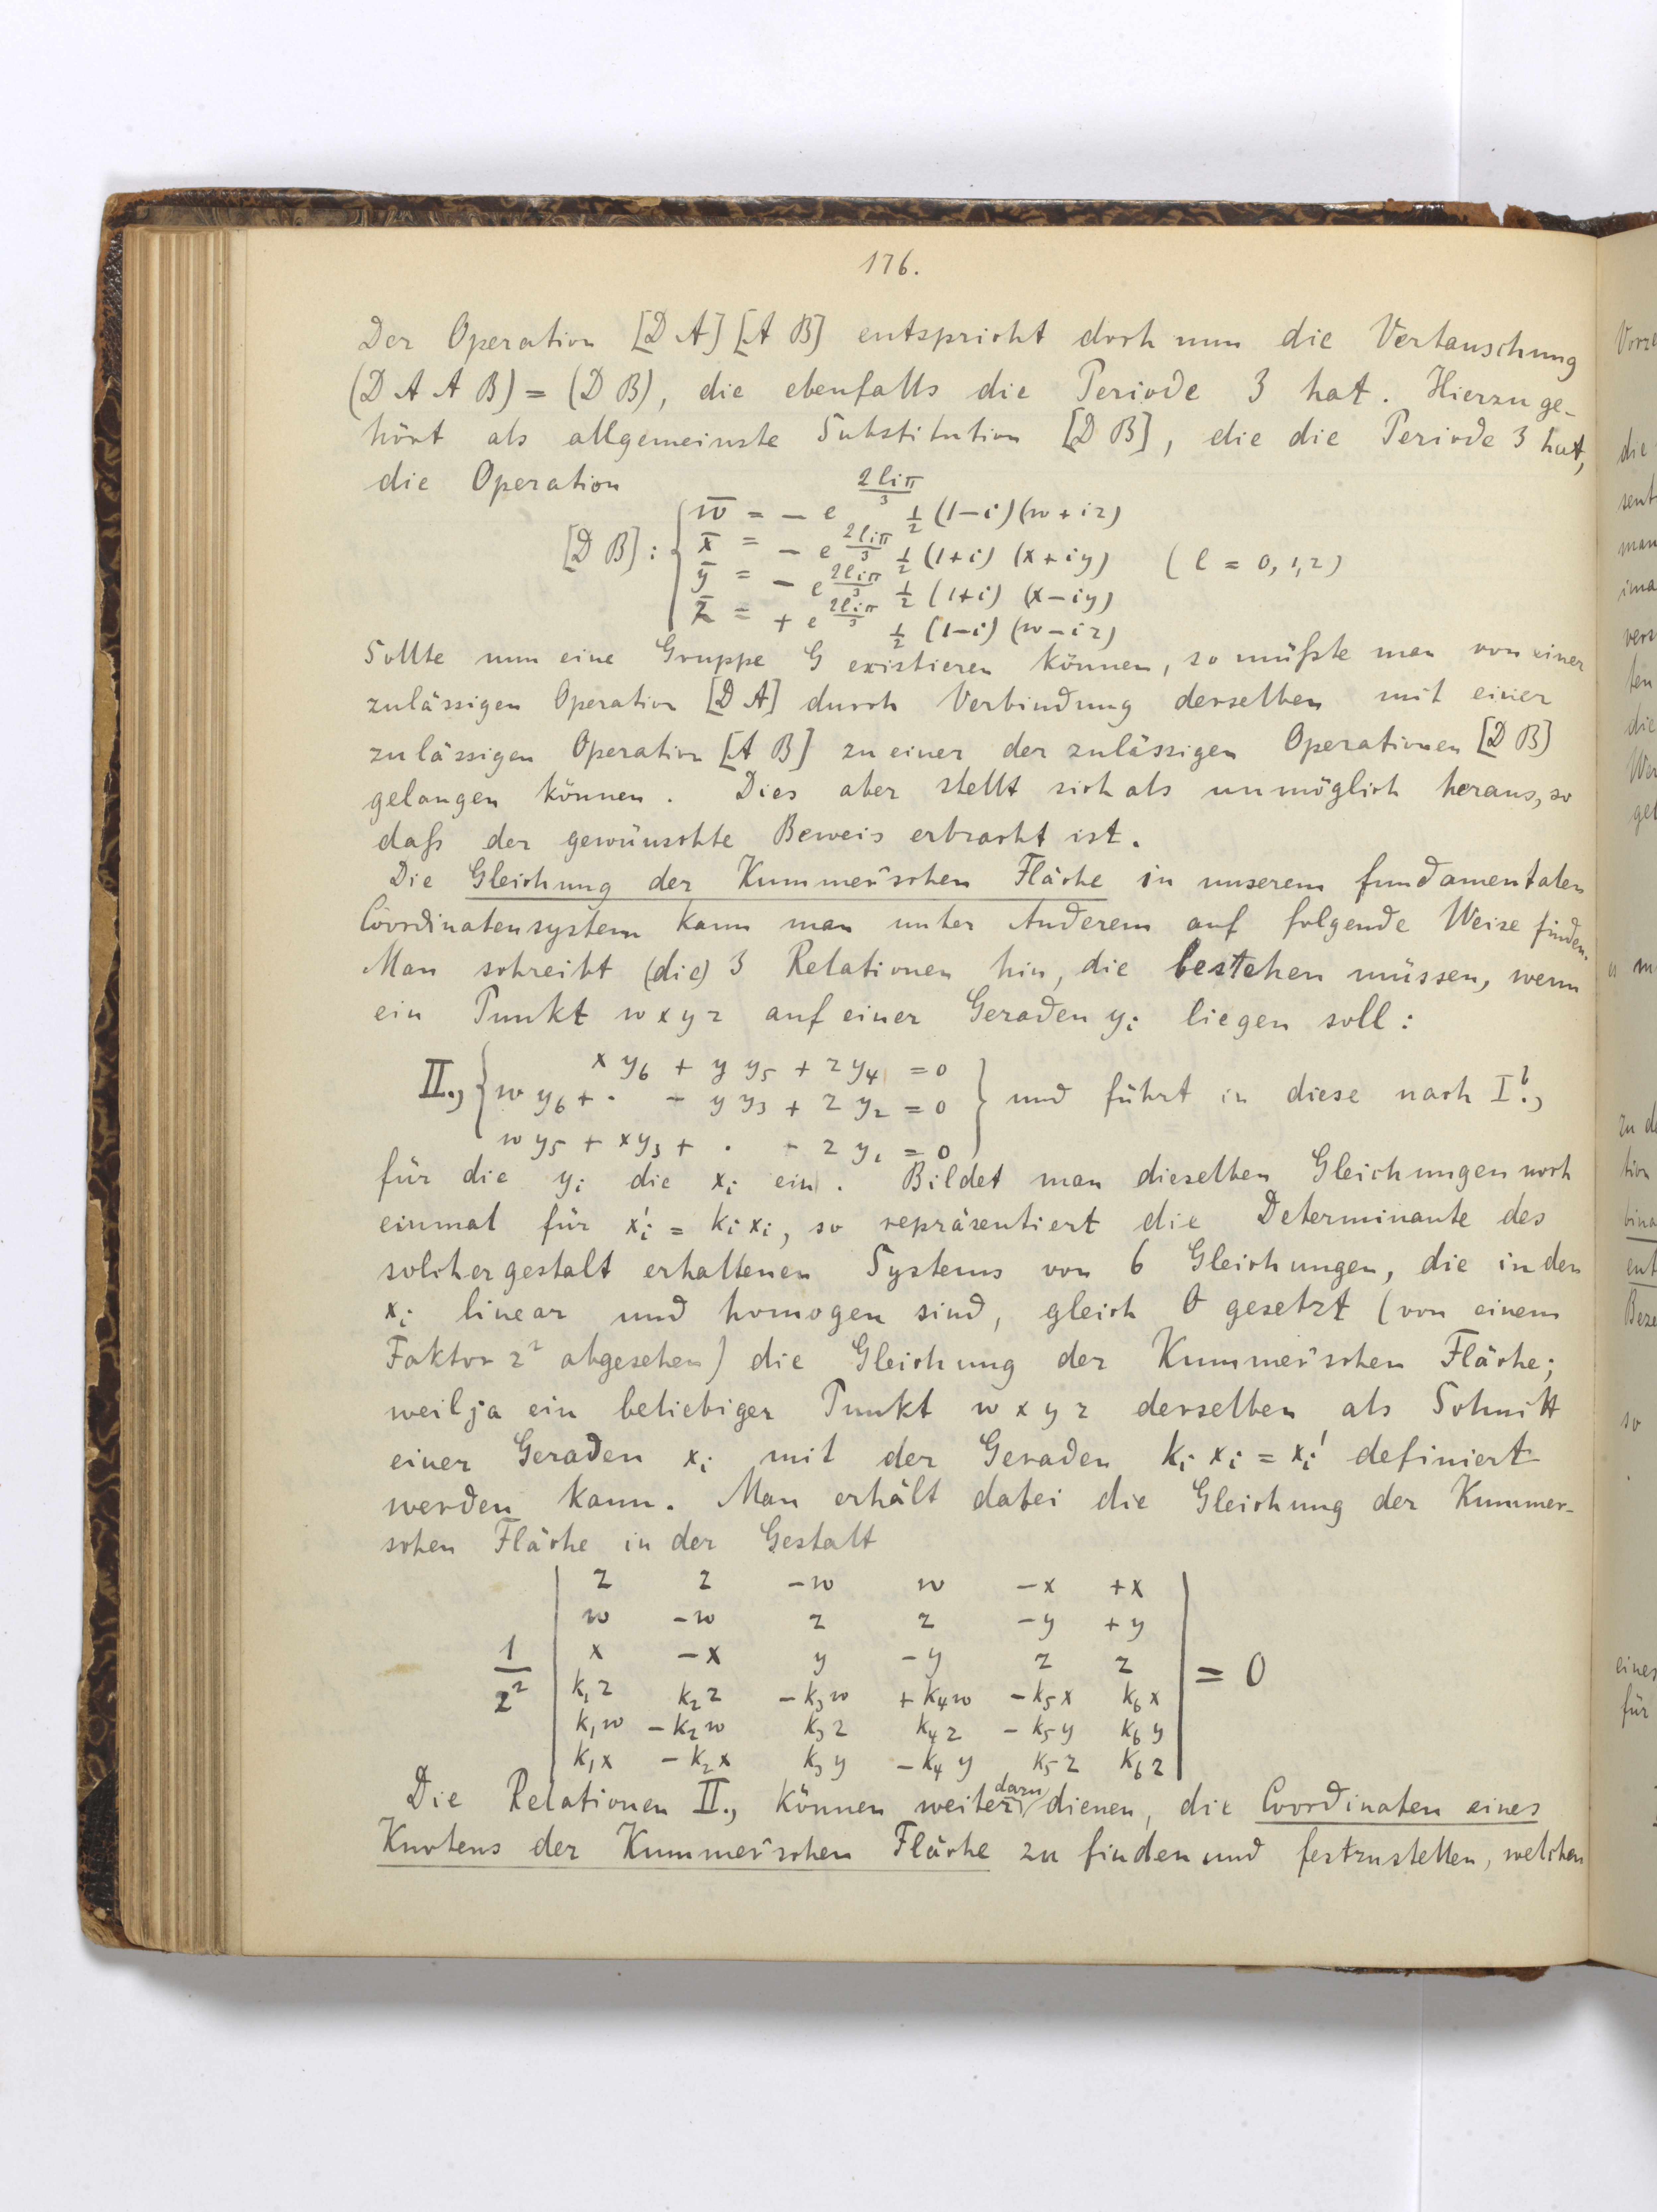 176.
Der Operation [D A] [A B] entspricht doch nun die Vertauschung
(D A A B) = (D B), die ebenfalls die Periode 3 hat. Hierzu ge-
hört als allgemeinste Substitution [D B], die die Periode 3 hat,
die Operation
[D B] : { w̄ = − e^{2liπ/3} ½ (1−i)(w+iz)
x̄ = − e^{2liπ/3} ½ (1+i) (x+iy) (l = 0,1,2)
ȳ = − e^{2liπ/3} ½ (1+i) (x−iy)
z̄ = + e^{2liπ/3} ½ (1−i) (w−iz)
Sollte nun eine Gruppe G existieren können, so müßte man von einer
zulässigen Operation [D A] durch Verbindung derselben mit einer
zulässigen Operation [A B] zu einer der zulässigen Operationen [D B]
gelangen können. Dies aber stellt sich als unmöglich heraus, so
daß der gewünschte Beweis erbracht ist.
Die Gleichung der Kummer'schen Fläche in unserem fundamentalen
Coordinatensystem kann man unter Anderem auf folgende Weise finden.
Man schreibt (die) 3 Relationen hin, die bestehen müssen, wenn
ein Punkt w x y z auf einer Geraden yᵢ liegen soll:
II., { x y₆ + y y₅ + z y₄ = 0
w y₆ + · − y y₃ + z y₂ = 0 } und führt in diese nach I.,
w y₅ + x y₃ + · − z y₁ = 0
für die yᵢ die xᵢ ein. Bildet man dieselben Gleichungen noch
einmal für x'ᵢ = kᵢ xᵢ, so repräsentiert die Determinante des
solchergestalt erhaltenen Systems von 6 Gleichungen, die in den
xᵢ linear und homogen sind, gleich 0 gesetzt (von einem
Faktor z² abgesehen) die Gleichung der Kummer'schen Fläche;
weil ja ein beliebiger Punkt w x y z derselben als Schnitt
einer Geraden xᵢ mit der Geraden kᵢ xᵢ = xᵢ' definiert
werden kann. Man erhält dabei die Gleichung der Kummer-
schen Fläche in der Gestalt
| z z −w w −x +x |
| w −w z z −y +y |
1/z² | x −x y −y z z | = 0
| k₁z k₂z −k₃w +k₄w −k₅x k₆x |
| k₁w −k₂w k₃z k₄z −k₅y k₆y |
| k₁x −k₂x k₃y −k₄y k₅z k₆z |
Die Relationen II., können weiter dazu dienen, die Coordinaten eines
Knotens der Kummer'schen Fläche zu finden und festzustellen, welchen